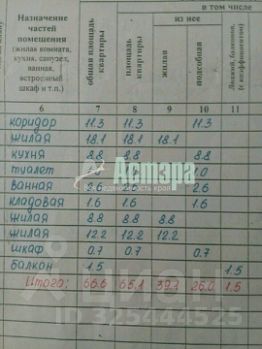 в том числе
Назначение частей помещения (жилая комната, кухня, санузел, ванная, встроенный шкаф и т.п.)
общая площадь квартиры
площадь квартиры
из нее
жилая
подсобная
Лоджий, балконов, (с коэффициентом)
6 7 8 9 10 11
коридор 11.3 11.3 11.3
жилая 18.1 18.1 18.1
кухня 8.8 8.8 8.8
туалет 1.0
ванная 2.6 2.6 2.6
кладовая 1.6 1.6 1.6
жилая 8.8 8.8 8.8
жилая 12.2 12.2 12.2
шкаф 0.7 0.7 0.7
балкон 1.5 1.5
Итого: 66.6 65.1 39.1 26.0 1.5
Астэра
недвижимость края
ЦИАН
ID 325444525